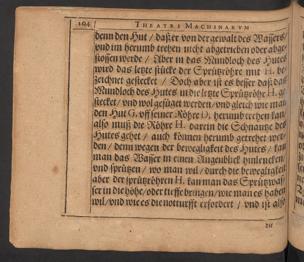 104 THEATRI MACHINARVM
denn den Hut / daß er von der gewalt des Wassers /
vnd im herumb trehen nicht abgetrieben oder abge-
stossen werde / Aber in das Mundloch des Hutes
wird das letzte stücke der Sprützröhre mit H. be-
zeichnet gestecket / Doch aber ist es besser daß das
Mundloch des Hutes in die letzte Sprützröhre H. ge-
stecket / vnd wol gefüget werden / vnd gleich wie man
den Hut G. vff seiner Röhre D. herumb trehen kan /
also muß die Röhre H. darein die Schnautze des
Hutes gehet / auch können herumb getrehet wer-
den / denn wegen der bewegligkeit des Hutes / kan
man das Wasser in einen Augenblick hinlencken /
vnd sprützen / wo man wil / durch die bewegligkeit
aber der sprützröhren H. kan man das Sprützwas-
ser in die höhe / oder tieffe bringen / wie man es haben
wil / vnd wie es die notturfft erfordert / vnd ist also